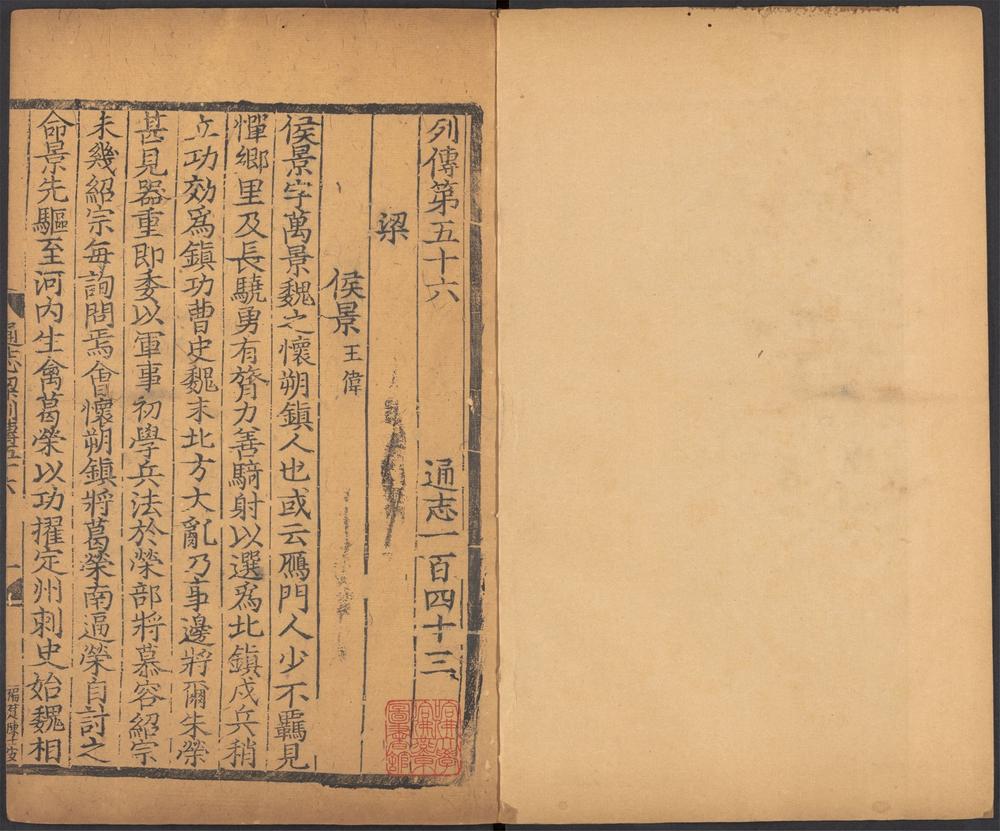 列傳第五十六　通志一百四十三
梁
侯景 王偉
侯景字萬景魏之懷朔鎮人也或云鴈門人少不羈見
憚鄉里及長驍勇有膂力善騎射以選爲北鎮戍兵稍
立功効爲鎮功曹史魏末北方大亂乃事邊將爾朱榮
甚見器重即委以軍事初學兵法於榮部將慕容紹宗
未幾紹宗每詢問焉會懷朔鎮將葛榮南逼榮自討之
命景先驅至河内生禽葛榮以功擢定州刺史始魏相
哈佛大學哈佛燕京圖書館